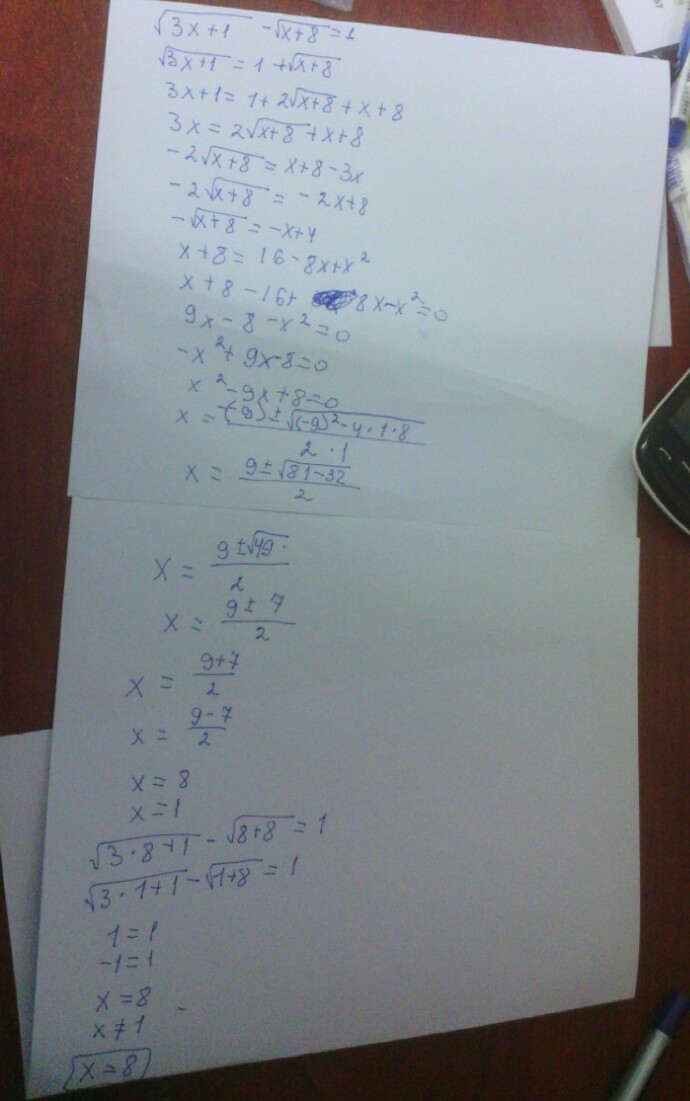 √3x+1 - √x+8 = 1
√3x+1 = 1 + √x+8
3x+1 = 1 + 2√x+8 + x + 8
3x = 2√x+8 + x + 8
-2√x+8 = x+8-3x
-2√x+8 = -2x+8
-√x+8 = -x+4
x+8 = 16-8x+x²
x+8-16+ 8x-x²=0
9x-8-x²=0
-x²+9x-8=0
x²-9x+8=0
x = -(-9)±√(-9)²-4·1·8 / 2·1
x = 9±√81-32 / 2
x = 9±√49 / 2
x = 9±7 / 2
x = 9+7 / 2
x = 9-7 / 2
x = 8
x = 1
√3·8+1 - √8+8 = 1
√3·1+1 - √1+8 = 1
1=1
-1=1
x=8
x≠1
x=8